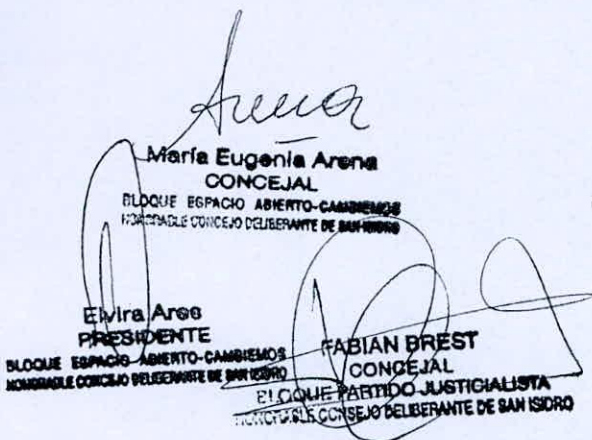 Arena
María Eugenia Arena
CONCEJAL
BLOQUE ESPACIO ABIERTO-CAMBIEMOS
HONORABLE CONCEJO DELIBERANTE DE SAN ISIDRO
Elvira Arce
PRESIDENTE
BLOQUE ESPACIO ABIERTO-CAMBIEMOS
HONORABLE CONCEJO DELIBERANTE DE SAN ISIDRO
FABIAN BREST
CONCEJAL
BLOQUE PARTIDO JUSTICIALISTA
HONORABLE CONSEJO DELIBERANTE DE SAN ISIDRO